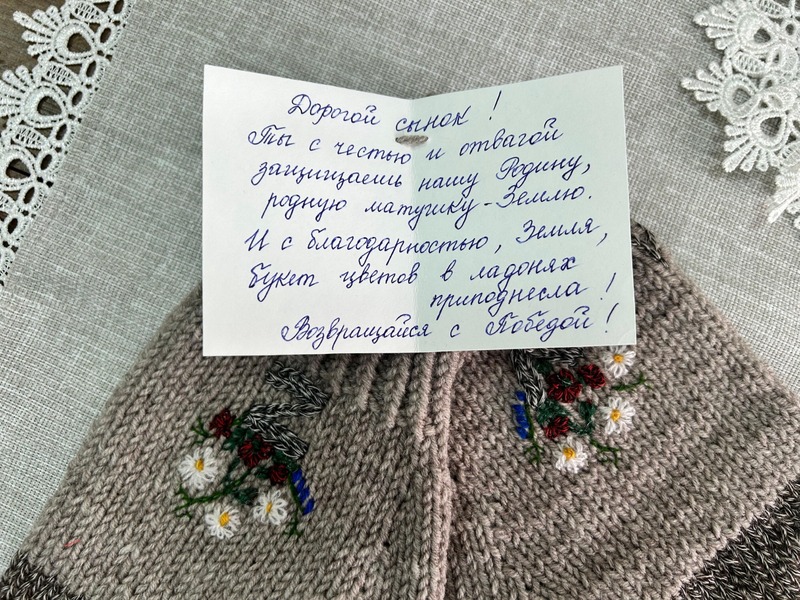 Дорогой сынок!
Ты с честью и отвагой
защищаешь нашу Родину,
родную матушку-Землю.
И с благодарностью, Земля,
букет цветов в ладонях
приподнесла!
Возвращайся с Победой!